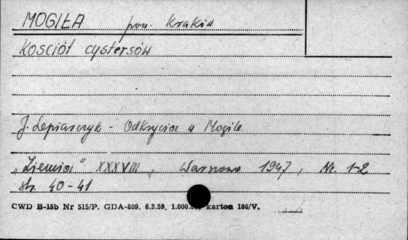 MOGIŁA pow. Kraków
Kościół cystersów
J. Lepiarczyk - Odkrycia w Mogile
„Ziemia" XXXVIII, Warszawa 1947, Nr. 1-2
str. 40-41
CWD B-15b Nr 515/P. GDA-809. 6.3.59. 1.000.000 karton 180/V.